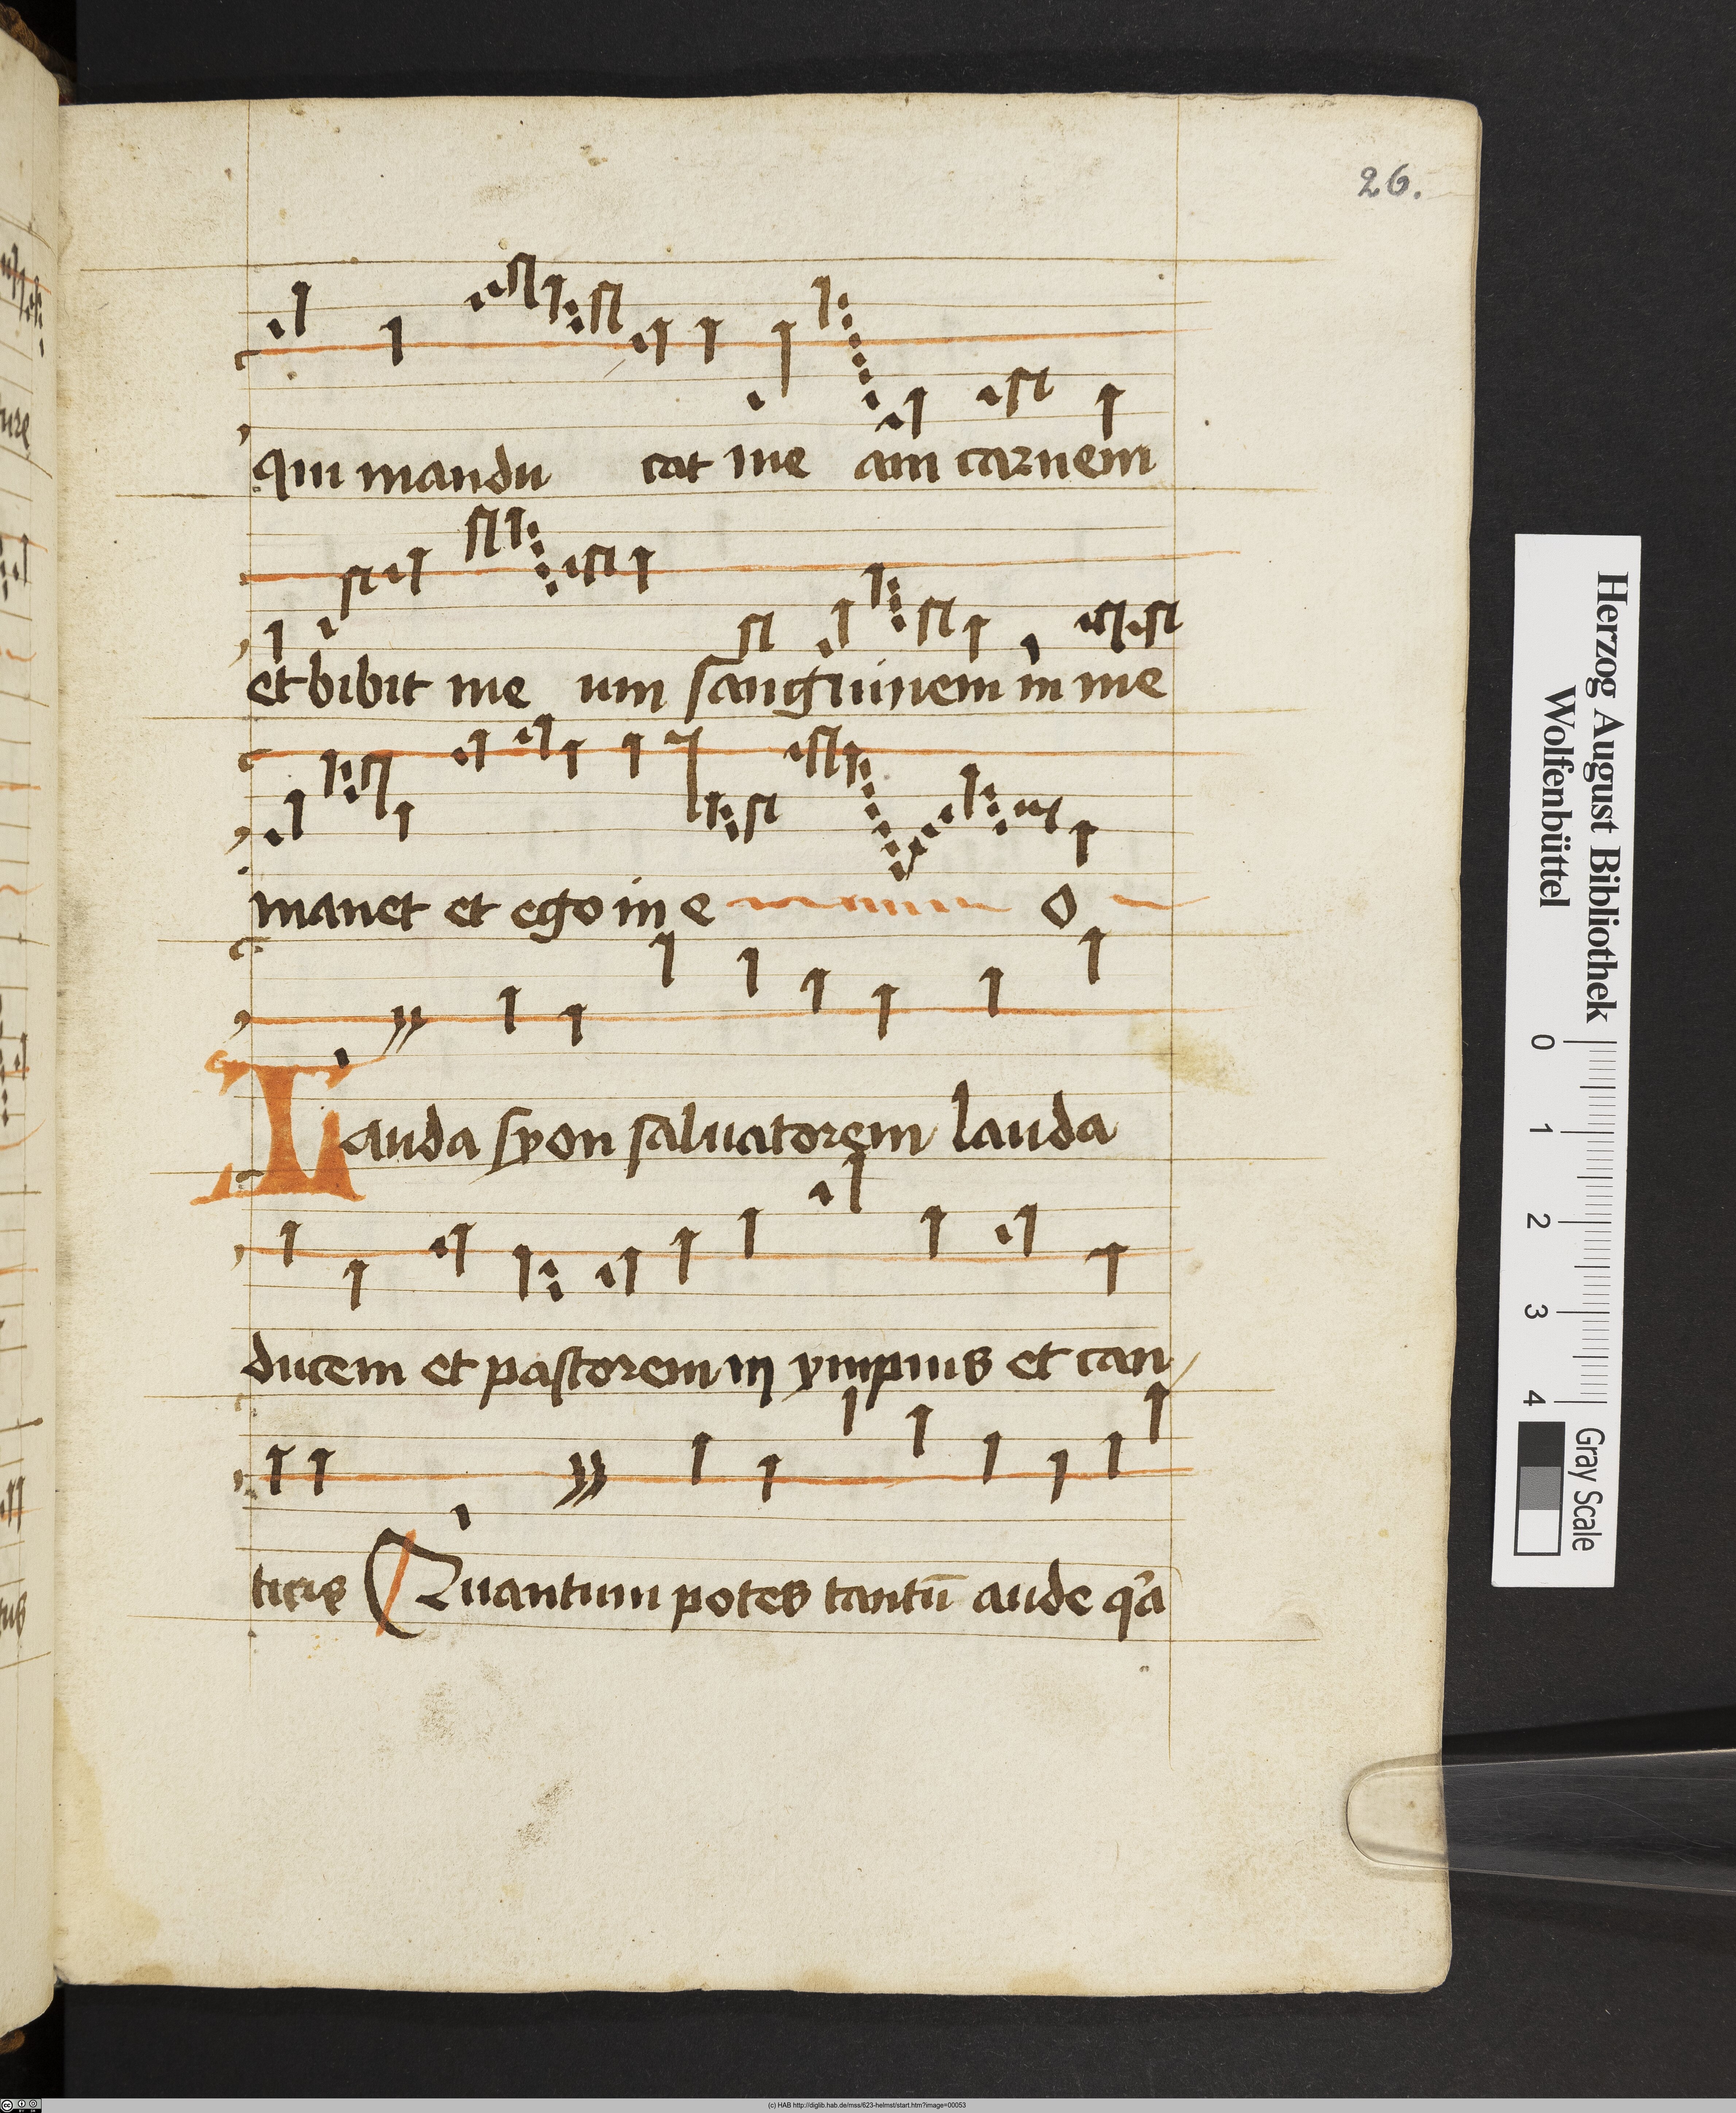 26.
qui mandu cat me am carnem
et bibit me um sanguinem in me
manet et ego in e o
Lauda syon salvatorem lauda
ducem et pastorem in ympnis et can
ticis Quantum potes tantū aude q̄a
Herzog August Bibliothek
Wolfenbüttel
0 1 2 3 4
Gray Scale
(c) HAB http://diglib.hab.de/mss/623-helmst/start.htm?image=00053